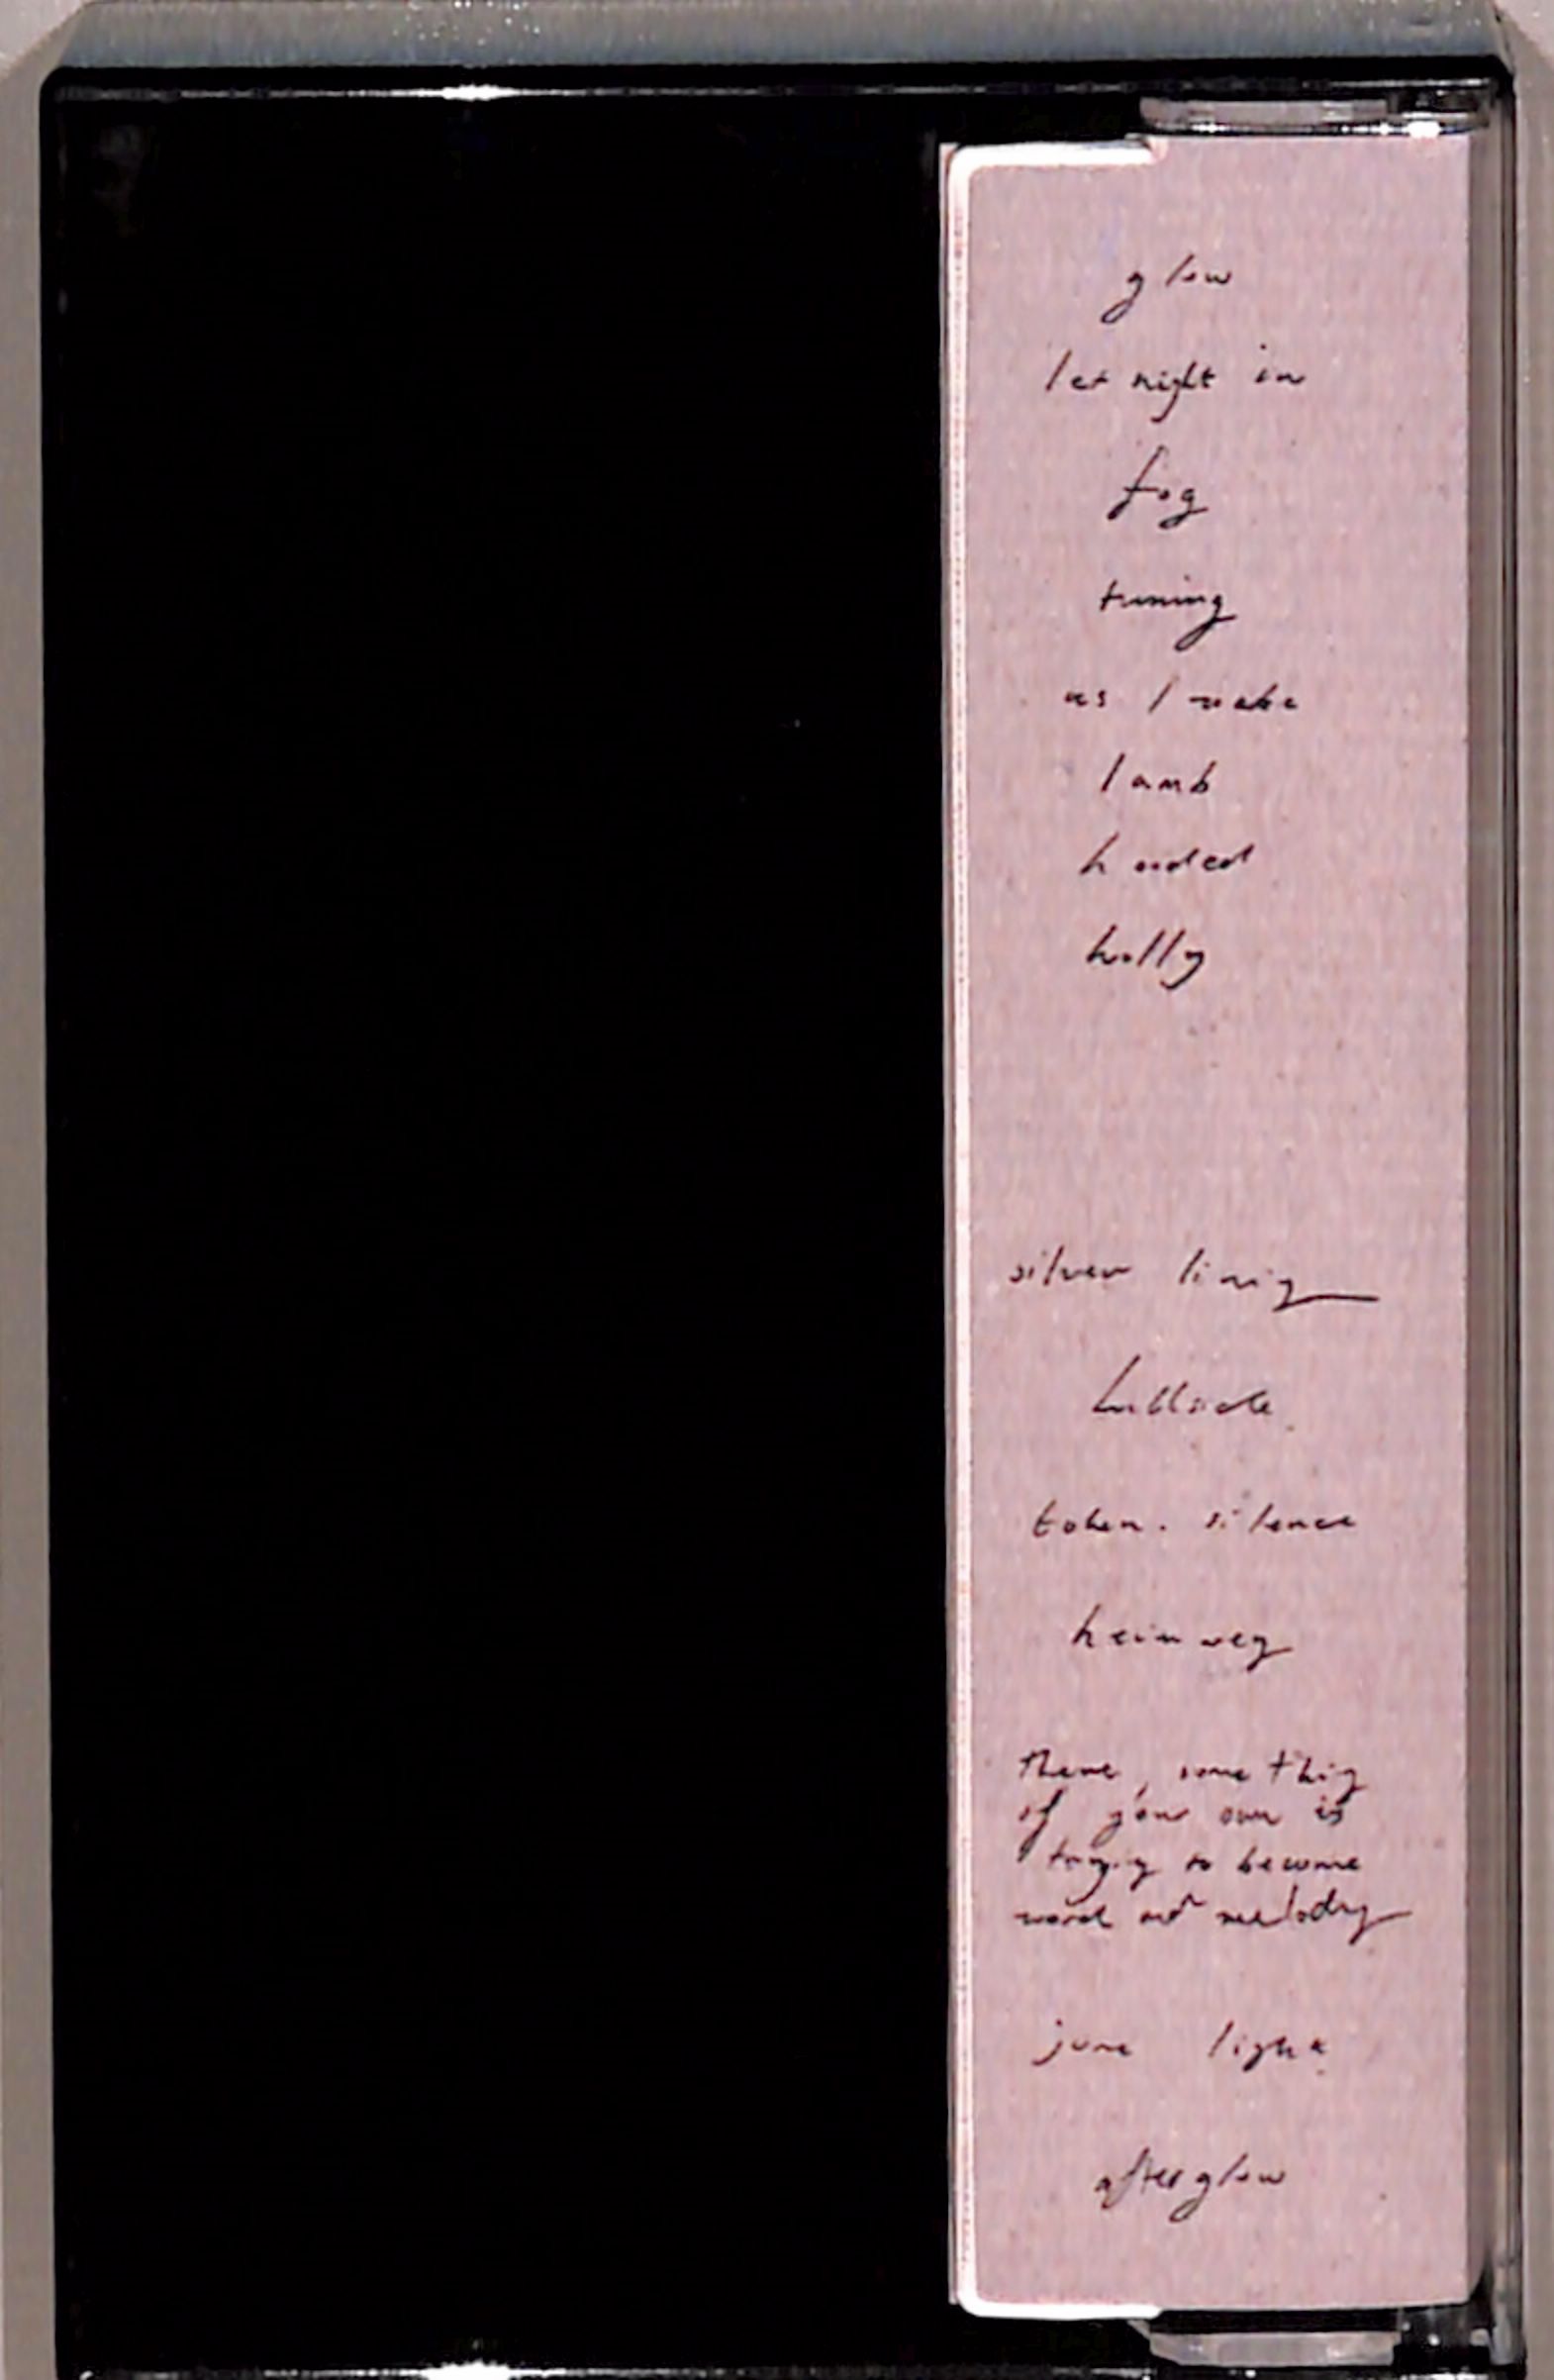 glow
let night in
fog
tuning
as I wake
lamb
hooded
holly
silver lining
hillside
token. silence
heimweg
there, something
of your own is
trying to become
word and melody
june light
afterglow